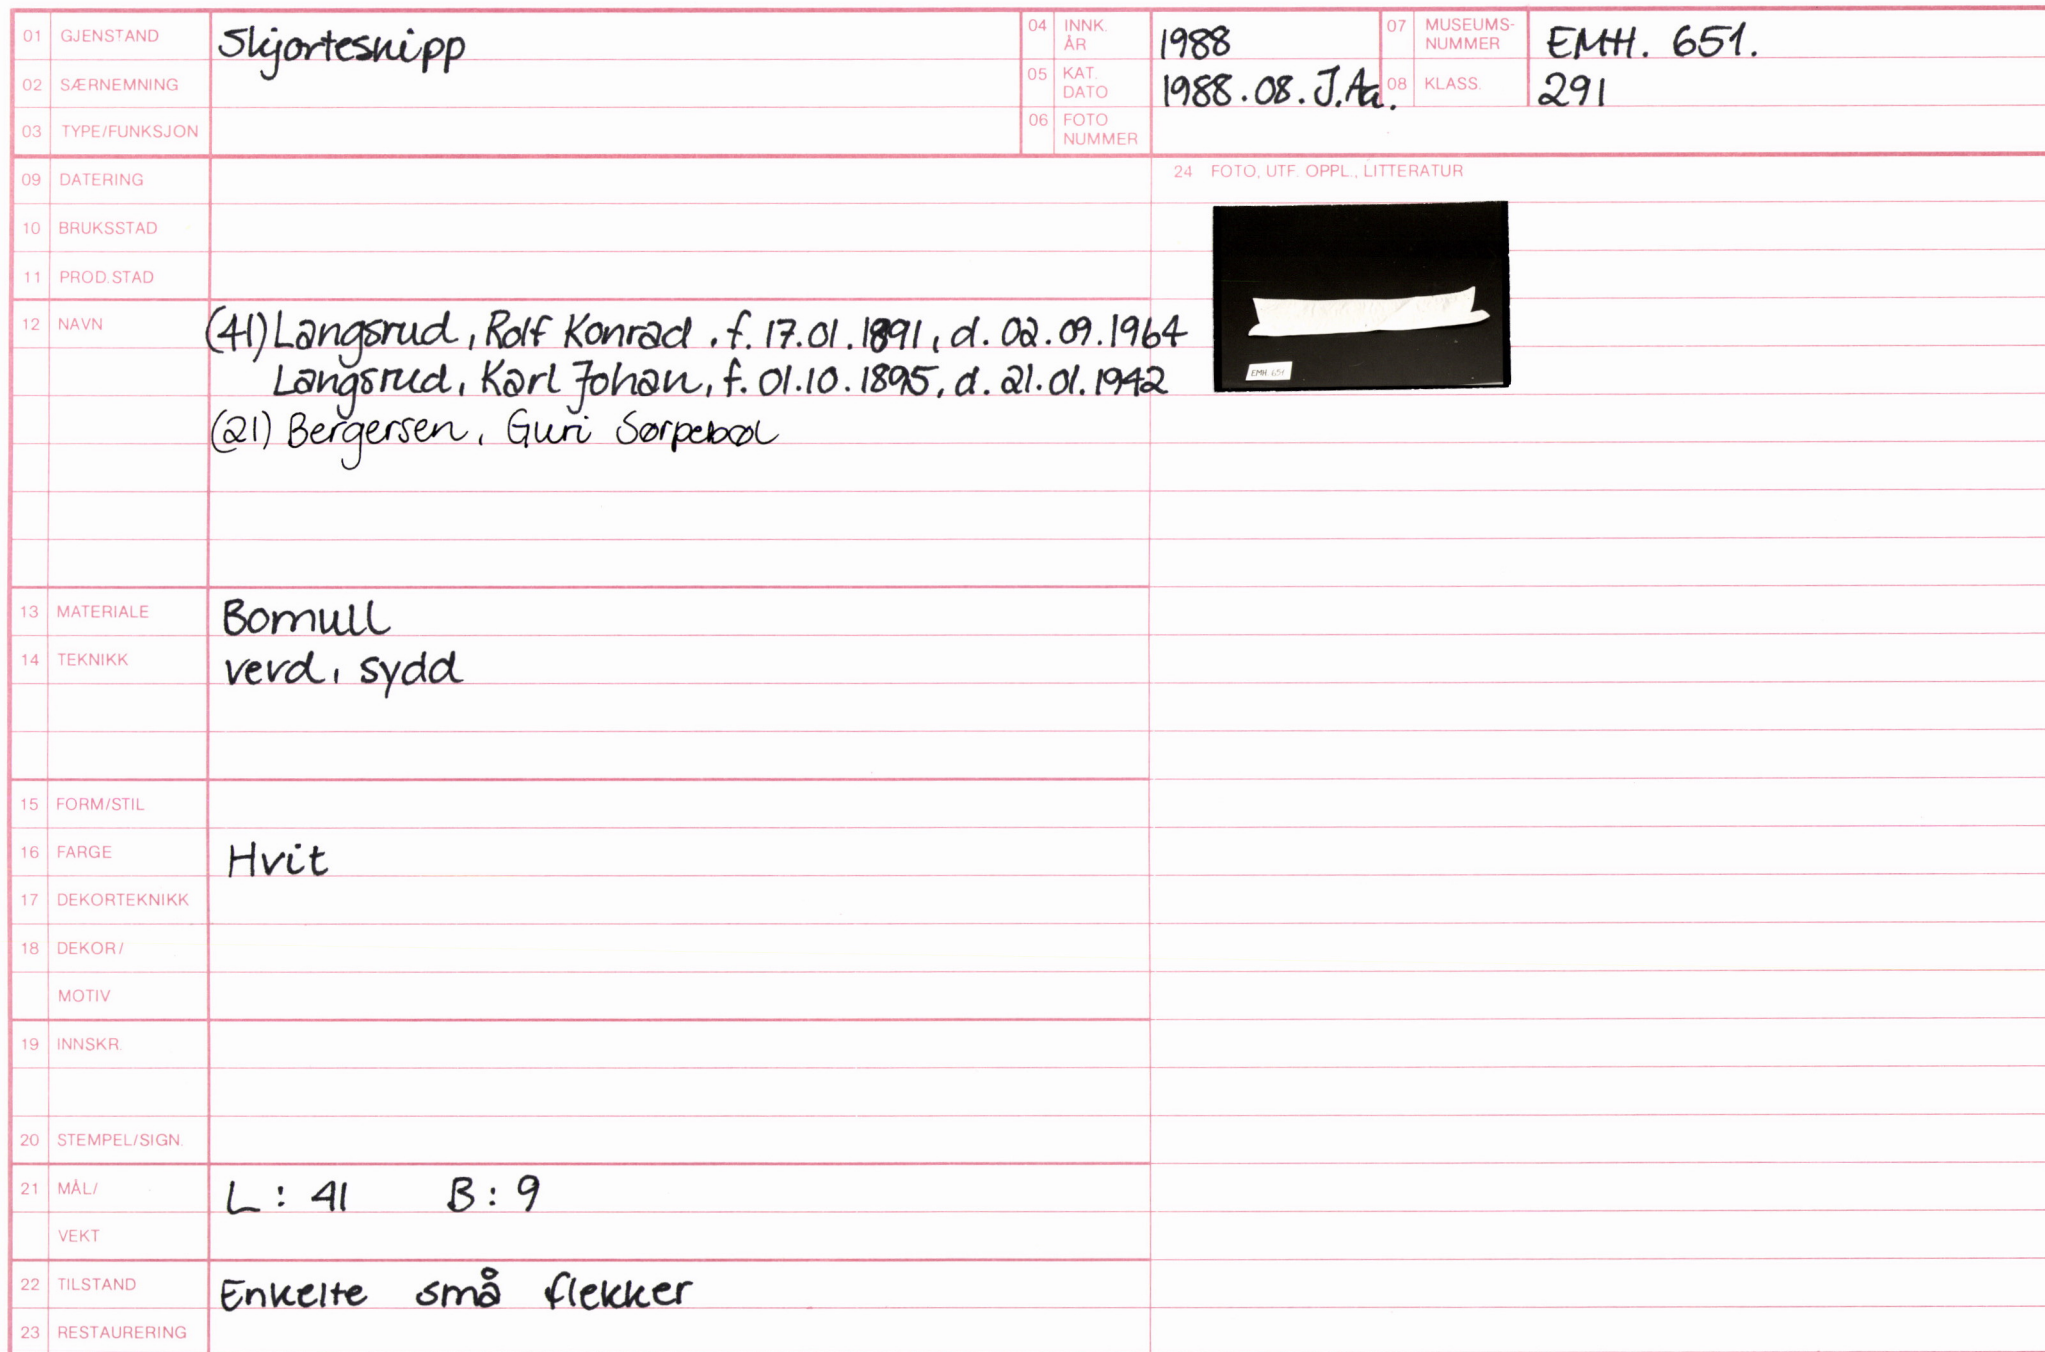 01 GJENSTAND Skjortesnipp
02 SÆRNEMNING
03 TYPE/FUNKSJON
04 INNK. ÅR 1988
05 KAT. DATO 1988.08. J.Aa.
06 FOTO NUMMER
07 MUSEUMS-NUMMER EMH. 651.
08 KLASS. 291
09 DATERING
10 BRUKSSTAD
11 PROD.STAD
12 NAVN (41) Langsrud, Rolf Konrad, f. 17.01.1891, d. 02.09.1964
Langsrud, Karl Johan, f. 01.10.1895, d. 21.01.1942
(21) Bergersen, Guri Sørpebøl
13 MATERIALE Bomull
14 TEKNIKK verd, sydd
15 FORM/STIL
16 FARGE Hvit
17 DEKORTEKNIKK
18 DEKOR/
MOTIV
19 INNSKR.
20 STEMPEL/SIGN.
21 MÅL/ L: 41 B: 9
VEKT
22 TILSTAND Enkelte små flekker
23 RESTAURERING
24 FOTO, UTF. OPPL., LITTERATUR
EMH. 651